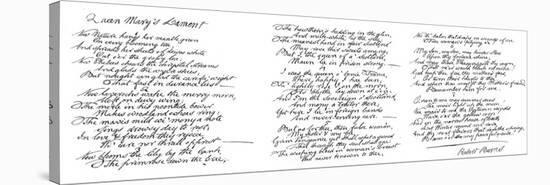 Queen Mary's Lament
Now Nature hangs her mantle green
On every blooming tree
And spreads her sheets o' daisies white
Out o'er the grassy lea
Now Phœbus cheers the crystal streams
And glads the azure skies
But nought can glad the weary wight
That fast in durance lies
Now laverocks wake the merry morn
Aloft on dewy wing
The merle in his noontide bower
Makes woodland echoes ring
The mavis mild wi' mony a note
Sings drowsy day to rest
In love & freedom they rejoice
Wi' care nor thrall opprest
Now blooms the lily by the bank
The primrose down the brae
The hawthorn's budding in the glen
And milk-white is the slae
The meanest hind in fair Scotland
May rove their sweets amang
But I the Queen of a' Scotland
Maun lie in prison strang
I was the Queen o' bonie France
Where happy I hae been
Fu' lightly rose I in the morn
As blythe lay down at e'en
And I'm the Sovereign of Scotland
And mony a traitor there
Yet here I lie in foreign bands
And never ending care
But as for thee thou false woman
My sister & my fae
Grim vengeance yet shall whet a sword
That through thy soul shall gae
The weeping blood in woman's breast
Was never known to thee
Nor th' balm that draps on wounds of woe
Frae woman's pitying e'e
My son, my son, may kinder stars
Upon thy fortune shine
And may those pleasures gild thy reign
That ne'er wad blink on mine
God keep thee frae thy mother's faes
Or turn their hearts to thee
And where thou meet'st thy mother's friend
Remember him for me
O soon to me may summer suns
Nae mair light up the morn
Nae mair to me the autumn winds
Wave o'er the yellow corn
And in the narrow house of death
Let winter round me rave
And the next flowers that deck the spring
Bloom on my peaceful grave
Robert Burns